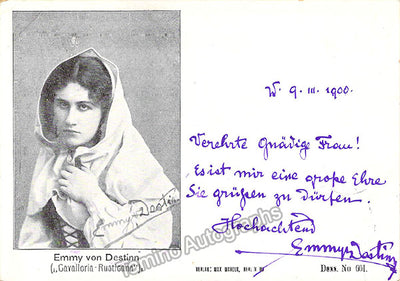 W. 9. III. 1900.
Verehrte Gnädige Frau!
Es ist mir eine große Ehre
Sie grüßen zu dürfen.
Hochachtend
Emmy Destinn
Emmy Destinn
Emmy von Destinn
(„Cavalleria-Rusticana“).
Tamino Autographs
Denn. No 601.